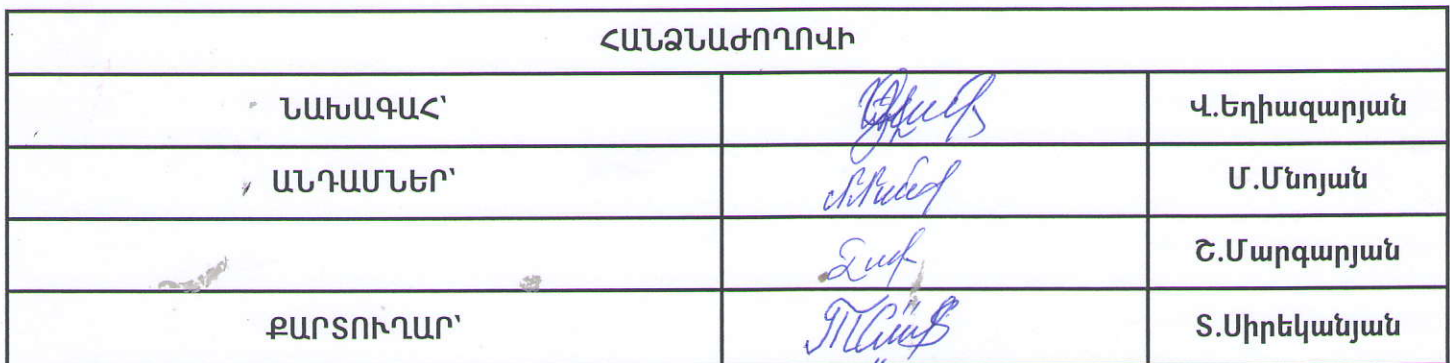 ՀԱՆՁՆԱԺՈՂՈՎԻ
ՆԱԽԱԳԱՀ՝ Վ.Եղիազարյան
ԱՆԴԱՄՆԵՐ՝ Մ.Մնոյան
Շ.Մարգարյան
ՔԱՐՏՈՒՂԱՐ՝ Տ.Սիրեկանյան